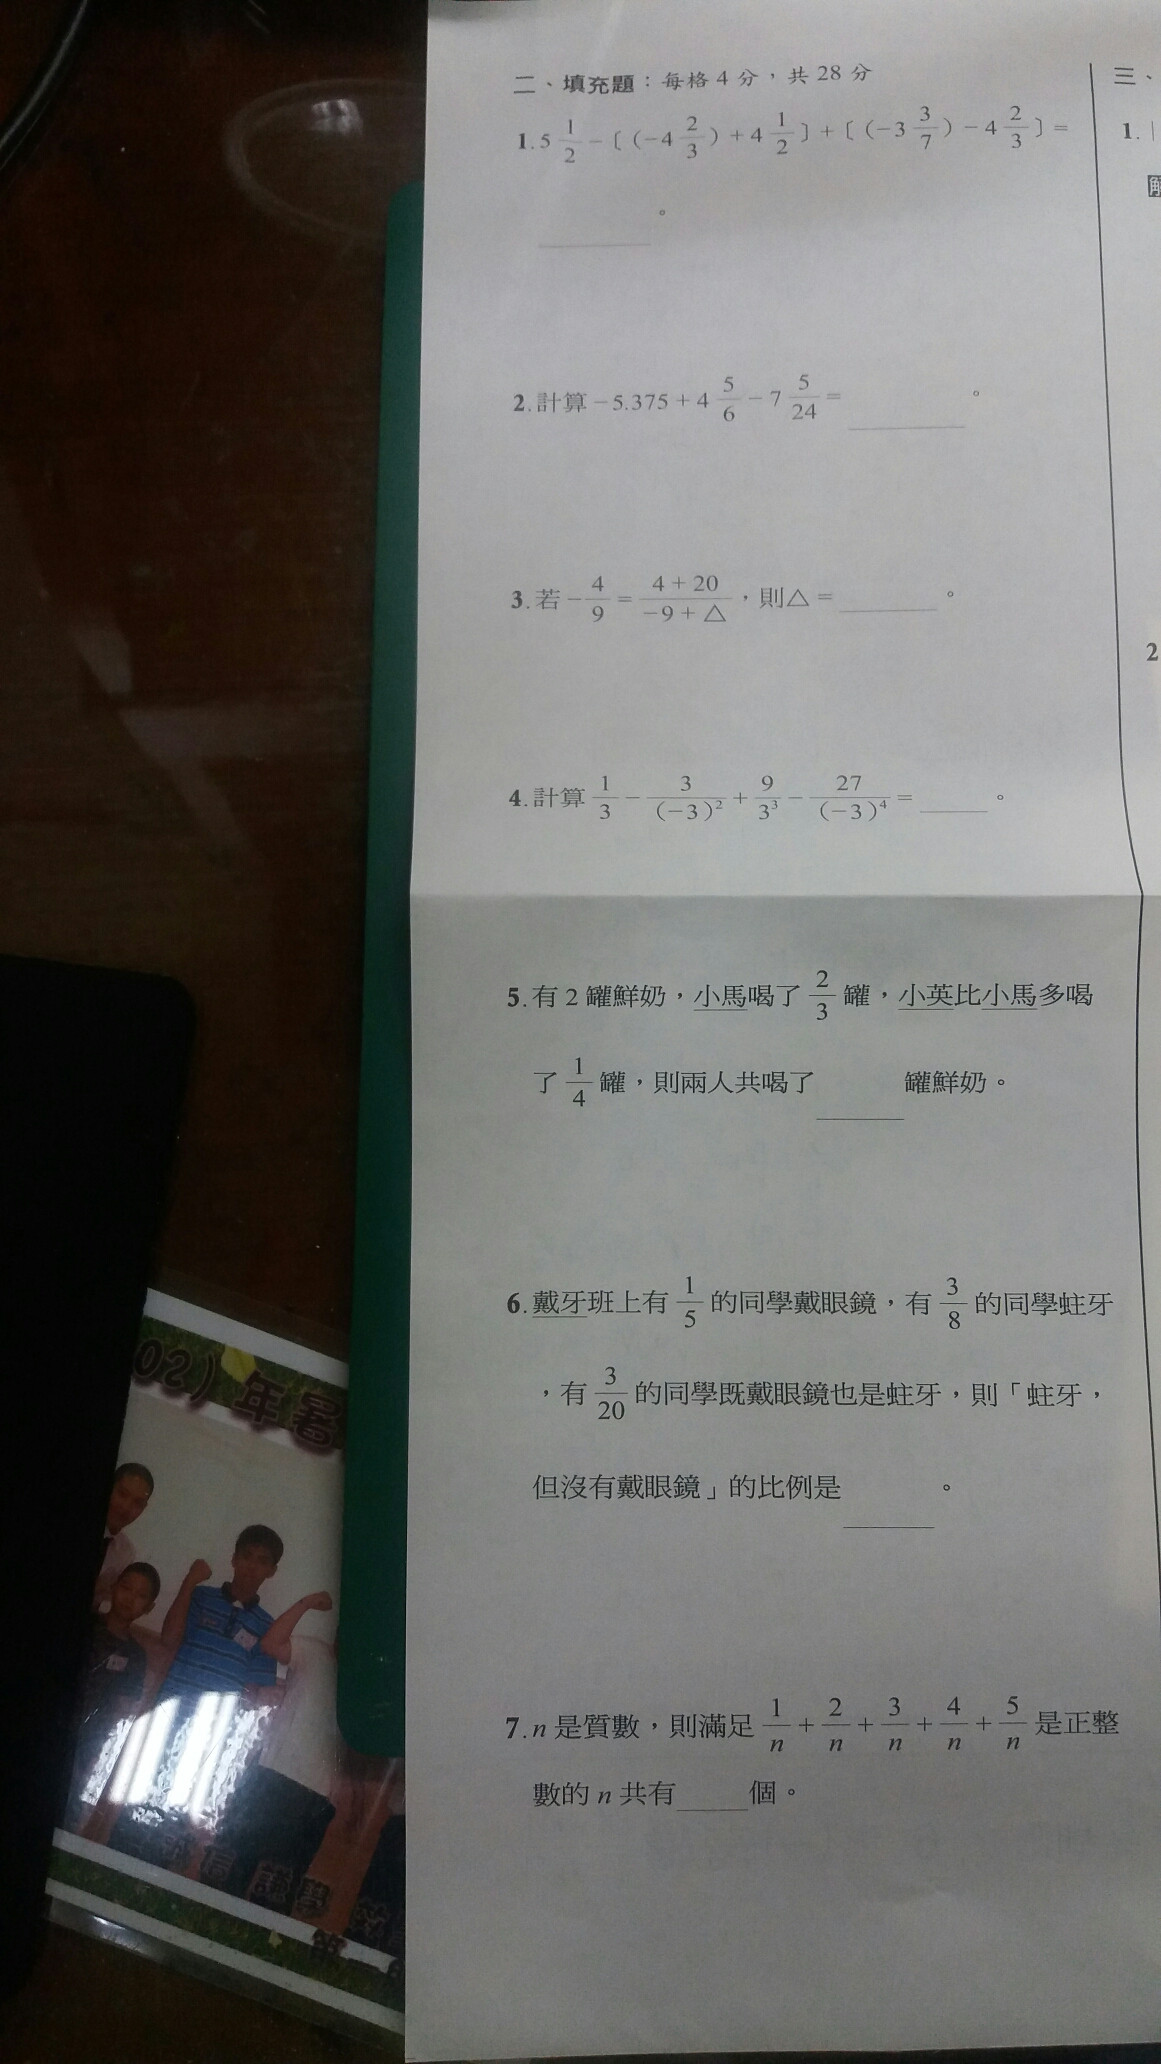 二、填充題：每格 4 分，共 28 分
三、
1. 5 1/2 −〔(−4 2/3)＋4 1/2〕＋〔(−3 3/7)−4 2/3〕＝
______。
1.
解
2. 計算 −5.375＋4 5/6 −7 5/24 ＝ ______。
3. 若 −4/9 ＝ (4＋20)/(−9＋△)，則△＝ ______。
2
4. 計算 1/3 − 3/(−3)² ＋ 9/3³ − 27/(−3)⁴ ＝ ______。
5. 有 2 罐鮮奶，小馬喝了 2/3 罐，小英比小馬多喝
了 1/4 罐，則兩人共喝了 ______ 罐鮮奶。
6. 戴牙班上有 1/5 的同學戴眼鏡，有 3/8 的同學蛀牙
，有 3/20 的同學既戴眼鏡也是蛀牙，則「蛀牙，
但沒有戴眼鏡」的比例是 ______。
7. n 是質數，則滿足 1/n ＋ 2/n ＋ 3/n ＋ 4/n ＋ 5/n 是正整
數的 n 共有 ______ 個。
02) 年暑